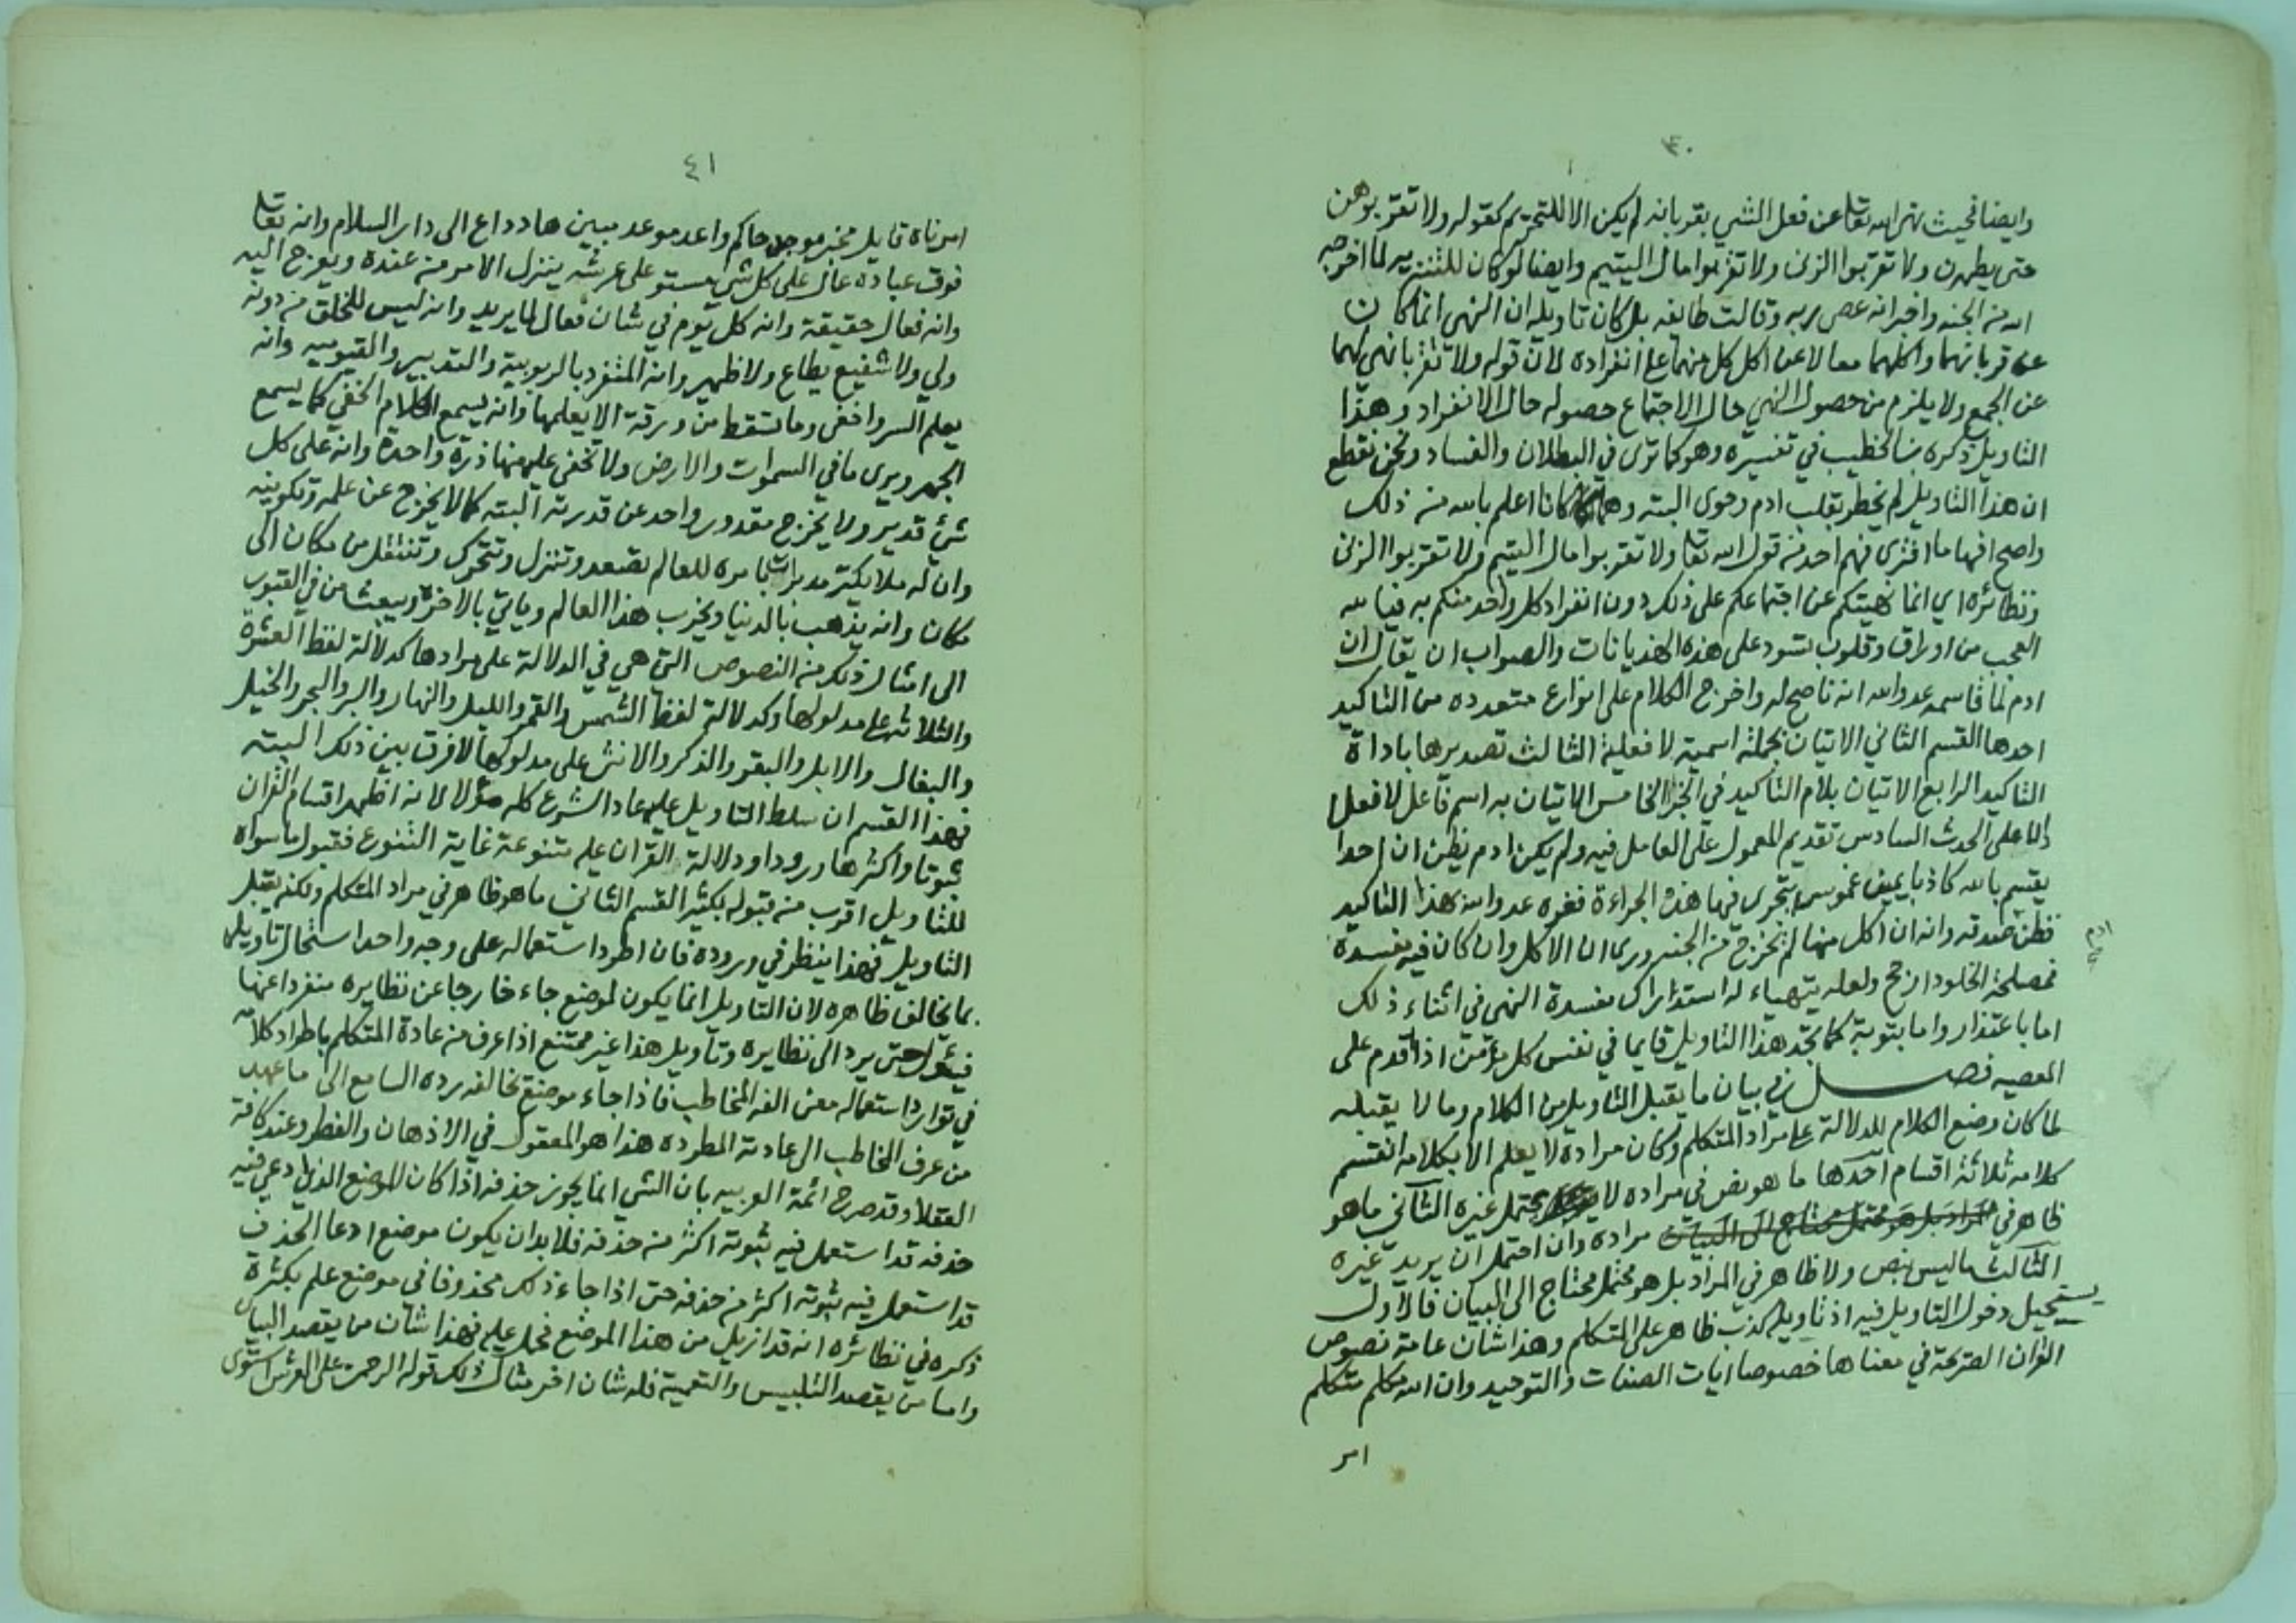 ٤٠
وايضا فحيث نهى الله تعالى عن فعل الشي بقربانه لم يكن الا للتحريم كقوله ولا تقربوهن
حتى يطهرن ولا تقربوا الزنى ولا تقربوا مال اليتيم وايضا لو كان للتنزيه لما اخرجه
الله من الجنه واخبر انه عصى ربه وقالت طايفه بل كان تاويله ان النهي انما كان
عن قربانهما واكلهما معا لا عن اكل كل منهما على انفراده لان قوله ولا تقربا نهي لهما
عن الجمع ولا يلزم من حصول النهي حال الاجتماع حصوله حال الانفراد وهذا
التاويل ذكره بن الخطيب في تفسيره وهو كما ترى في البطلان والفساد ونحن نقطع
ان هذا التاويل لم يخطر بقلب ادم وحوى البته وهما كانا اعلم بالله من ذلك
واصح افهاما افترى فهم احد من قول الله تعالى ولا تقربوا مال اليتيم ولا تقربوا الزنى
ونظائره اي انما نهيتكم عن اجتماعكم على ذلك دون انفراد كل واحد منكم به فيا لله
العجب من اوراق وقلوب تسود على هذه الهذيانات والصواب ان يقال ان
ادم لما قاسمه عدو الله انه ناصح له واخرج الكلام على انواع متعدده من التاكيد
احدها القسم الثاني الاتيان بجملة اسمية لا فعلية الثالث تصديرها باداة
التاكيد الرابع الاتيان بلام التاكيد في الخبر الخامس الاتيان به اسم فاعل لا فعلا
دالا على الحدث السادس تقديم المعمول على العامل فيه ولم يكن ادم يظن ان احدا
يقسم بالله كاذبا يمين غموس يتجرى فيها هذه الجراءة فغره عدو الله بهذا التاكيد
فظن صدقه وانه ان اكل منها لم يخرج من الجنه وراى ان الاكل وان كان فيه مفسدة
ادم
فمصلحة الخلود ارجح ولعله يتهياء له استدراك مفسدة النهي في اثناء ذلك
اما باعتذار واما بتوبة كما تجد هذا التاويل قايما في نفس كل مؤمن اذا اقدم على
المعصيه فصل في بيان ما يقبل التاويل من الكلام وما لا يقبله
لما كان وضع الكلام للدلالة على مراد المتكلم وكان مراده لا يعلم الا بكلامه انقسم
كلامه ثلاثة اقسام احدها ما هو نص في مراده لا يحتمل غيره الثاني ما هو
ظاهر في المراد بل هو محتمل محتاج الى البيان مراده وان احتمل ان يريد غيره
الثالث ما ليس بنص ولا ظاهر في المراد بل هو محتمل محتاج الى البيان فالاول
يستحيل دخول التاويل فيه اذ تاويله كذب ظاهر على المتكلم وهذا شان عامة نصوص
القران الصريحة في معناها خصوصا ايات الصفات والتوحيد وان الله مكلم متكلم
امر
٤١
امر ناه قايل مخبر موجد حاكم واعد موعد مبين هاد داع الى دار السلام وانه تعالى
فوق عباده عال على كل شي مستو على عرشه ينزل الامر من عنده ويعرج اليه
وانه فعال حقيقة وانه كل يوم في شان فعال لما يريد وانه ليس للخلق من دونه
ولي ولا شفيع يطاع ولا ظهير وانه المتفرد بالربوبية والتدبير والقيوميه وانه
يعلم السر واخفى وما تسقط من ورقة الا يعلمها وانه يسمع الكلام الخفي كما يسمع
الجهر ويرى ما في السموات والارض ولا تخفى عليه منها ذرة واحدة وانه على كل
شئ قدير ولا يخرج مقدور واحد عن قدرته البته كما لا يخرج عن علمه وتكوينه
وان له ملايكة مدبرات بامره للعالم تصعد وتنزل وتتحرك وتنتقل من مكان الى
مكان وانه يذهب بالدنيا ويخرب هذا العالم وياتي بالاخرة ويبعث من في القبور
الى امثال ذلك من النصوص التي هي في الدلالة على مرادها كدلالة لفظ العشرة
والثلاثة على مدلولها وكدلالة لفظ الشمس والقمر والليل والنهار والبر والبحر والخيل
والبغال والابل والبقر والذكر والانثى على مدلولها لا فرق بين ذلك البته
فهذا القسم ان سلط التاويل عليه عاد الشرع كله مؤولا لانه اظهر اقسام القران
ثبوتا واكثرها ورودا ودلالة القران عليه متنوعة غاية التنوع فقبول ما سواه
للتاويل اقرب من قبوله بكثير القسم الثاني ما هو ظاهر في مراد المتكلم ولكنه يقبل
التاويل فهذا ينظر في وروده فان اطرد استعماله على وجه واحد استحال تاويله
بما يخالف ظاهره لان التاويل انما يكون لموضع جاء خارجا عن نظايره منفردا عنها
فيئول حتى يرد الى نظايره وتاويل هذا غير ممتنع اذا عرف من عادة المتكلم باطراد كلامه
في توارد استعماله معنى الفه المخاطب فاذا جاء موضع يخالفه رده السامع الى ما عهد
من عرف المخاطب الى عادته المطرده هذا هو المعقول في الاذهان والفطر وعند كافة
العقلا وقد صرح ائمة العربيه بان الشي انما يجوز حذفه اذا كان الموضع الذي ادعي فيه
حذفه قد استعمل فيه ثبوته اكثر من حذفه فلا بد ان يكون موضع ادعا الحذف
قد استعمل فيه ثبوته اكثر من حذفه حتى اذا جاء ذلك محذوفا في موضع علم بكثرة
ذكره في نظائره انه قد ازيل من هذا الموضع فحمل عليه فهذا شان من يقصد البيان
واما من يقصد التلبيس والتعمية فله شان اخر مثال ذلك قوله الرحمن على العرش استوى